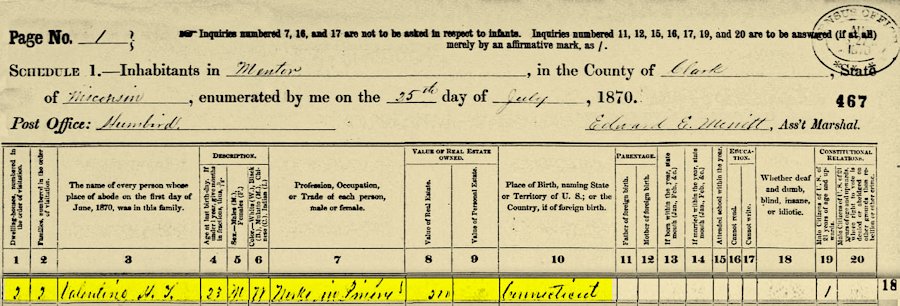 Page No. 1 } Inquiries numbered 7, 16, and 17 are not to be asked in respect to infants. Inquiries numbered 11, 12, 15, 16, 17, 19, and 20 are to be answered (if at all)
merely by an affirmative mark, as /.
CENSUS OFFICE
1870
SCHEDULE 1.—Inhabitants in Mentor, in the County of Clark, State
of Wisconsin, enumerated by me on the 25th day of July, 1870.
467
Post Office: Humbird. Edward E. Merritt, Ass't Marshal.
Dwelling-houses, numbered in the order of visitation.
Families, numbered in the order of visitation.
The name of every person whose place of abode on the first day of June, 1870, was in this family.
DESCRIPTION.
Age at last birth-day. If under 1 year, give months in fractions, thus, 3/12.
Sex.—Males (M.), Females (F.)
Color.—White (W.), Black (B.), Mulatto (M.), Chinese (C.), Indian (I.)
Profession, Occupation, or Trade of each person, male or female.
VALUE OF REAL ESTATE OWNED.
Value of Real Estate.
Value of Personal Estate.
Place of Birth, naming State or Territory of U. S.; or the Country, if of foreign birth.
PARENTAGE.
Father of foreign birth.
Mother of foreign birth.
If born within the year, state month (Jan., Feb., &c.)
If married within the year, state month (Jan., Feb., &c.)
Attended school within the year.
EDUCATION.
Cannot read.
Cannot write.
Whether deaf and dumb, blind, insane, or idiotic.
CONSTITUTIONAL RELATIONS.
Male Citizens of U. S. of 21 years of age and upwards.
1 2 3 4 5 6 7 8 9 10 11 12 13 14 15 16 17 18 19 20
2 2 Valentine H. 23 M W Works in 200 Connecticut 1 18